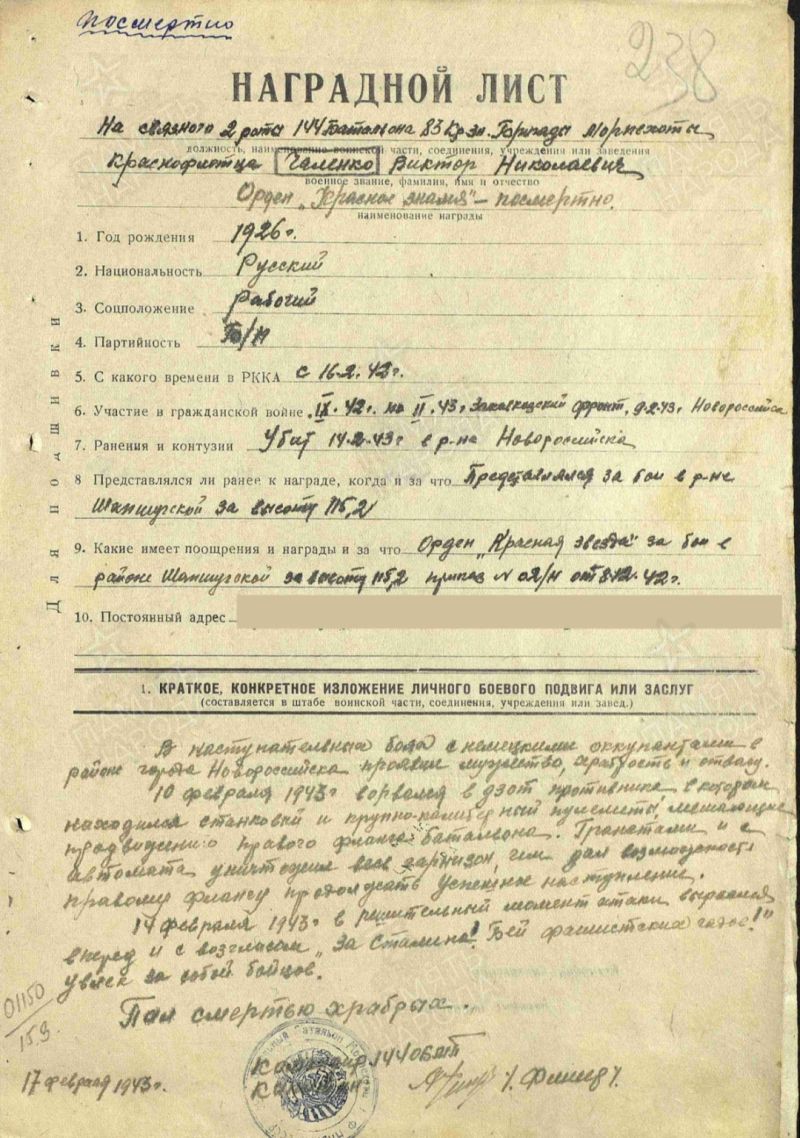 посмертно
238
НАГРАДНОЙ ЛИСТ
На связного 2 роты 144 Батальона 83 Кр.зн. Бригады Морпехоты
должность, наименование воинской части, соединения, учреждения или заведения
Краснофлотца Чаленко Виктор Николаевич
военное звание, фамилия, имя и отчество
Орден „Красное знамя" – посмертно.
наименование награды
1. Год рождения 1926 г.
2. Национальность Русский
3. Соцположение рабочий
4. Партийность
5. С какого времени в РККА с 16.2.42 г.
6. Участие в гражданской войне IX.42 г. по II.43 г Закавказский фронт, 9.2.43 г Новороссийск
7. Ранения и контузии Убит 14.2.43 г в р-не Новороссийска
8 Представлялся ли ранее к награде, когда и за что Представлялся за бои в р-не
Шапшугской за высоту 115,2
9. Какие имеет поощрения и награды и за что Орден „Красная звезда" за бои в
районе Шапшугской за высоту 115,2 приказ N 02/Н от 8.12.42 г.
10. Постоянный адрес
Для подшивки
1. КРАТКОЕ, КОНКРЕТНОЕ ИЗЛОЖЕНИЕ ЛИЧНОГО БОЕВОГО ПОДВИГА ИЛИ ЗАСЛУГ
(составляется в штабе воинской части, соединения, учреждения или завед.)
В наступательных боях с немецкими оккупантами в
районе города Новороссийска проявил мужество, храбрость и отвагу.
10 февраля 1943 г ворвался в дзот противника в котором
находился станковый и крупно-калиберный пулеметы, мешающие
продвижению правого фланга батальона. Гранатами и с
автомата уничтожил весь гарнизон, чем дал возможность
правому флангу продолжать успешное наступление.
14 февраля 1943 г в решительный момент атаки вырвался
вперед и с возгласом „За Сталина! Бей фашистских гадов!"
увлек за собой бойцов.
Пал смертью храбрых.
01150
159
Командир 144 ОБМП
17 февраля 1943 г.